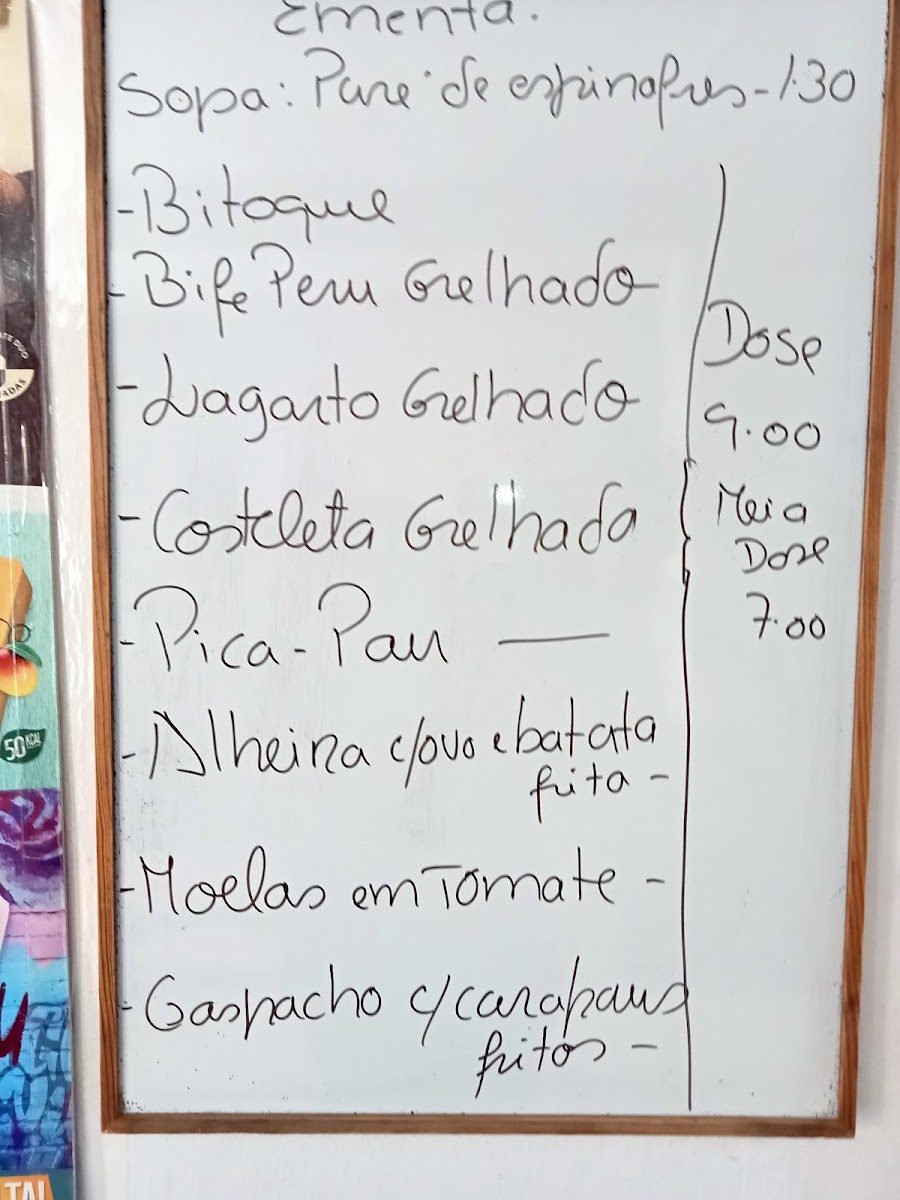 Ementa.
Sopa: Pure de espinafres - 1.30
- Bitoque
- Bife Peru Grelhado
- Lagarto Grelhado
- Costeleta Grelhada
- Pica-Pau —
- Alheina c/ovo e batata
frita -
- Moelas em Tomate -
- Gaspacho c/carapaus
fritos -
Dose
9.00
Meia
Dose
7.00
50 KCAL
TAL